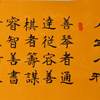 善琴者通
達從容善
棋者籌謀
睿智善書